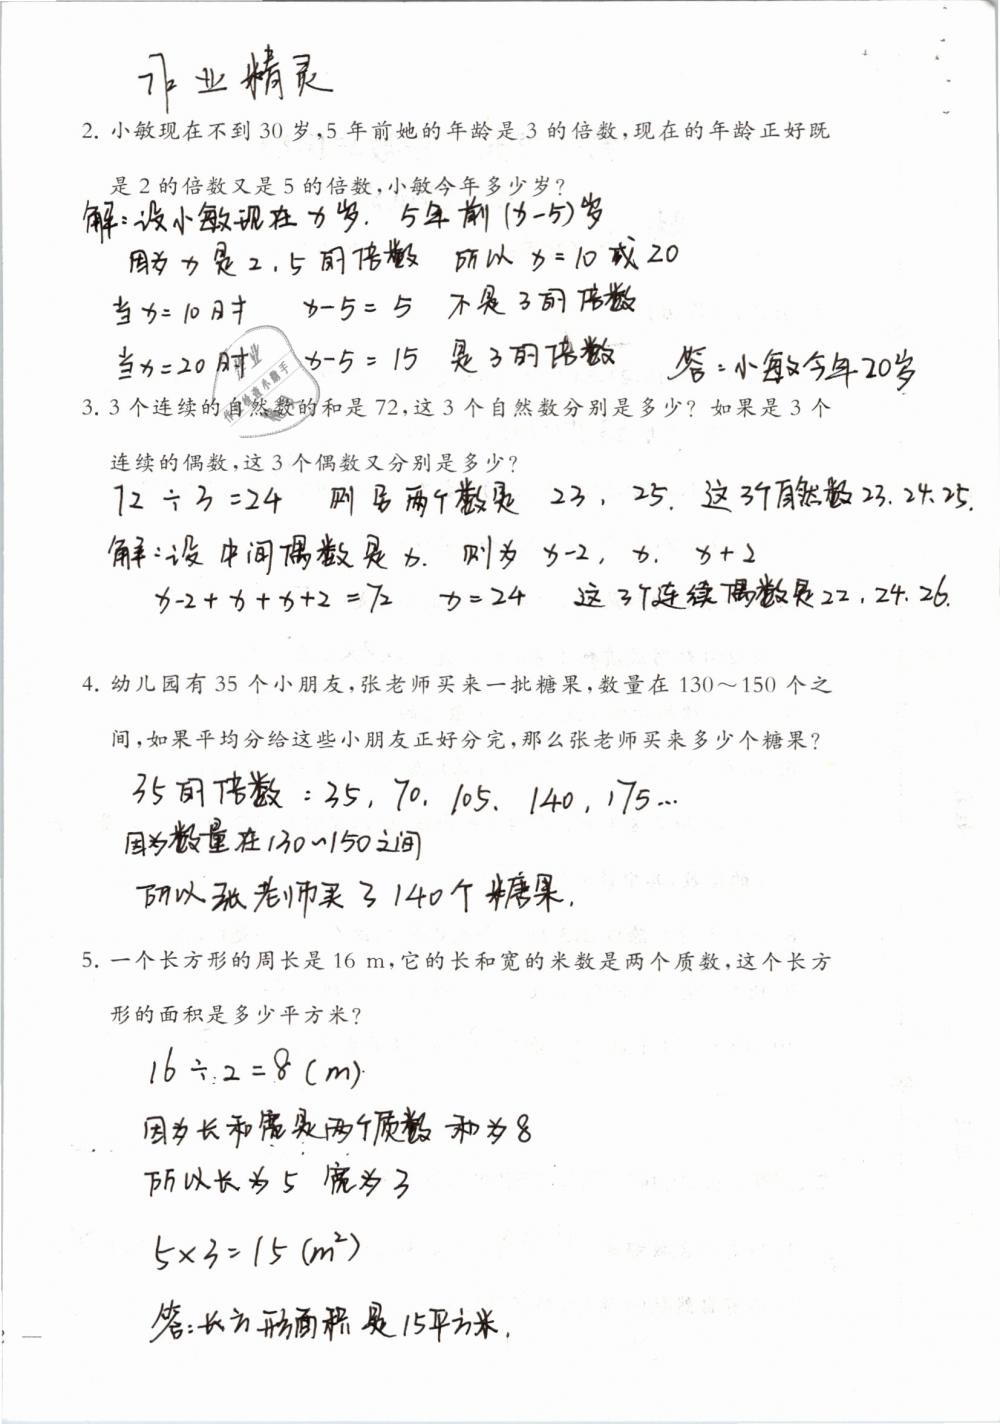 作业精灵
2. 小敏现在不到 30 岁,5 年前她的年龄是 3 的倍数,现在的年龄正好既
是 2 的倍数又是 5 的倍数,小敏今年多少岁?
解:设小敏现在x岁. 5年前(x-5)岁
因为x是2,5的倍数 所以x=10或20
当x=10时 x-5=5 不是3的倍数
当x=20时 x-5=15 是3的倍数 答:小敏今年20岁
3. 3 个连续的自然数的和是 72,这 3 个自然数分别是多少? 如果是 3 个
连续的偶数,这 3 个偶数又分别是多少?
72÷3=24 则另两个数是 23, 25. 这3个自然数23.24.25.
解:设中间偶数是x. 则为 x-2, x. x+2
x-2+x+x+2=72 x=24 这3个连续偶数是22,24.26.
4. 幼儿园有 35 个小朋友,张老师买来一批糖果,数量在 130～150 个之
间,如果平均分给这些小朋友正好分完,那么张老师买来多少个糖果?
35的倍数:35,70,105,140,175…
因为数量在130~150之间
所以张老师买了140个糖果.
5. 一个长方形的周长是 16 m,它的长和宽的米数是两个质数,这个长方
形的面积是多少平方米?
16÷2=8(m)
因为长和宽是两个质数 和为8
所以长为5 宽为3
5×3=15(m²)
答:长方形面积是15平方米.